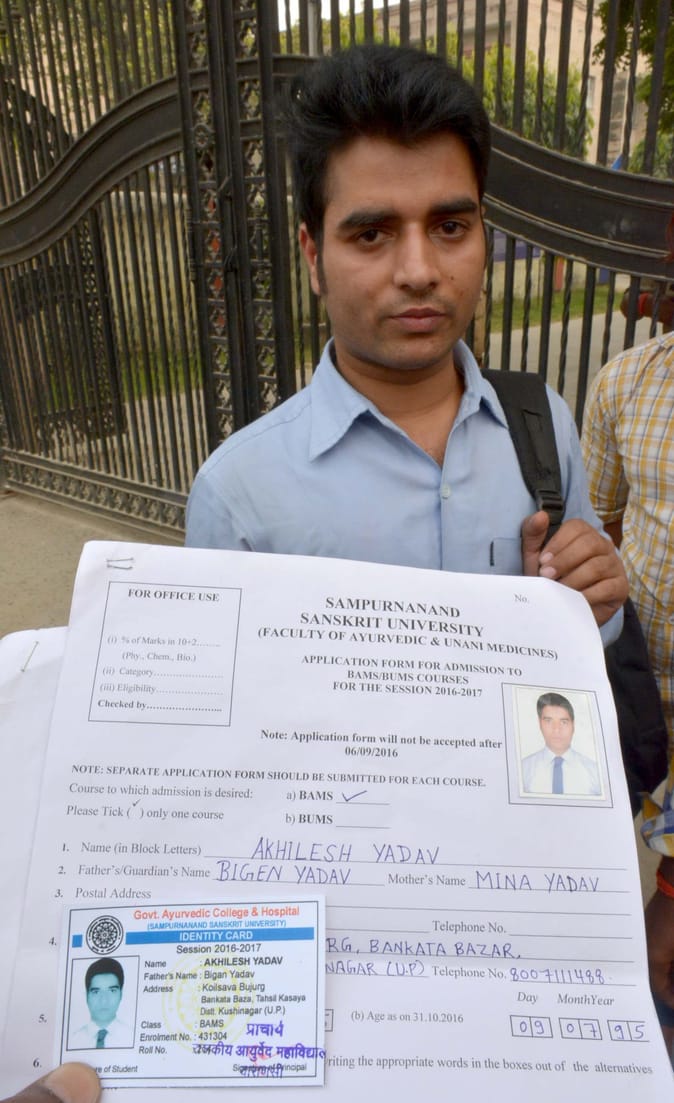 FOR OFFICE USE
(i) % of Marks in 10+2........
(Phy., Chem., Bio.)
(ii) Category......................
(iii) Eligibility......................
Checked by........................
No.
SAMPURNANAND
SANSKRIT UNIVERSITY
(FACULTY OF AYURVEDIC & UNANI MEDICINES)
APPLICATION FORM FOR ADMISSION TO
BAMS/BUMS COURSES
FOR THE SESSION 2016-2017
Note: Application form will not be accepted after
06/09/2016
NOTE: SEPARATE APPLICATION FORM SHOULD BE SUBMITTED FOR EACH COURSE.
Course to which admission is desired: a) BAMS ✓
Please Tick (✓) only one course b) BUMS
1. Name (in Block Letters) AKHILESH YADAV
2. Father's/Guardian's Name BIGEN YADAV Mother's Name MINA YADAV
3. Postal Address
Telephone No.
4. RG, BANKATA BAZAR,
NAGAR (U.P) Telephone No. 8007111488
Day Month Year
5. (b) Age as on 31.10.2016 09 07 95
6. riting the appropriate words in the boxes out of the alternatives
Govt. Ayurvedic College & Hospital
(SAMPURNANAND SANSKRIT UNIVERSITY)
IDENTITY CARD
Session 2016-2017
Name : AKHILESH YADAV
Father's Name : Bigan Yadav
Address : Koilsava Bujurg
Bankata Baza, Tahsil Kasaya
Distt. Kushinagar (U.P.)
Class : BAMS
Enrolment No. : 431304
Roll No. :
प्राचार्य
राजकीय आयुर्वेद महाविद्यालय
वाराणसी
e of Student
Signature of Principal